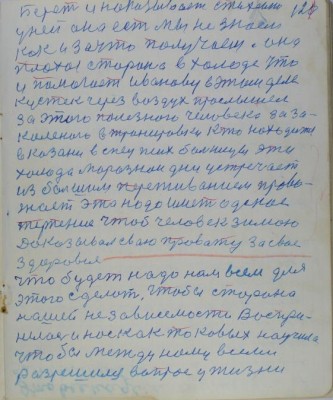 берет и наказывает стихею 127
у ней она есть мы не знаем
как и за что получаем. она
плохая сторона в холоде что
и помогает иванову в этим деле
кустик через воздух
за этого полезного человека за за-
каленого в тренеровки кто находится
в казани в спец псих больницы эти
холода морозная дни устречает
из большим переживанием прово-
жает это надо имет оденое
терпение чтоб человек зимою
доказывал сваю правату за свае
здоровие
что будет надо нам всем для
этого сделат, чтобы сторона
нашей независемости
нас как таковых научила
чтобы между нами всеми
разрешился вопрос у жизни